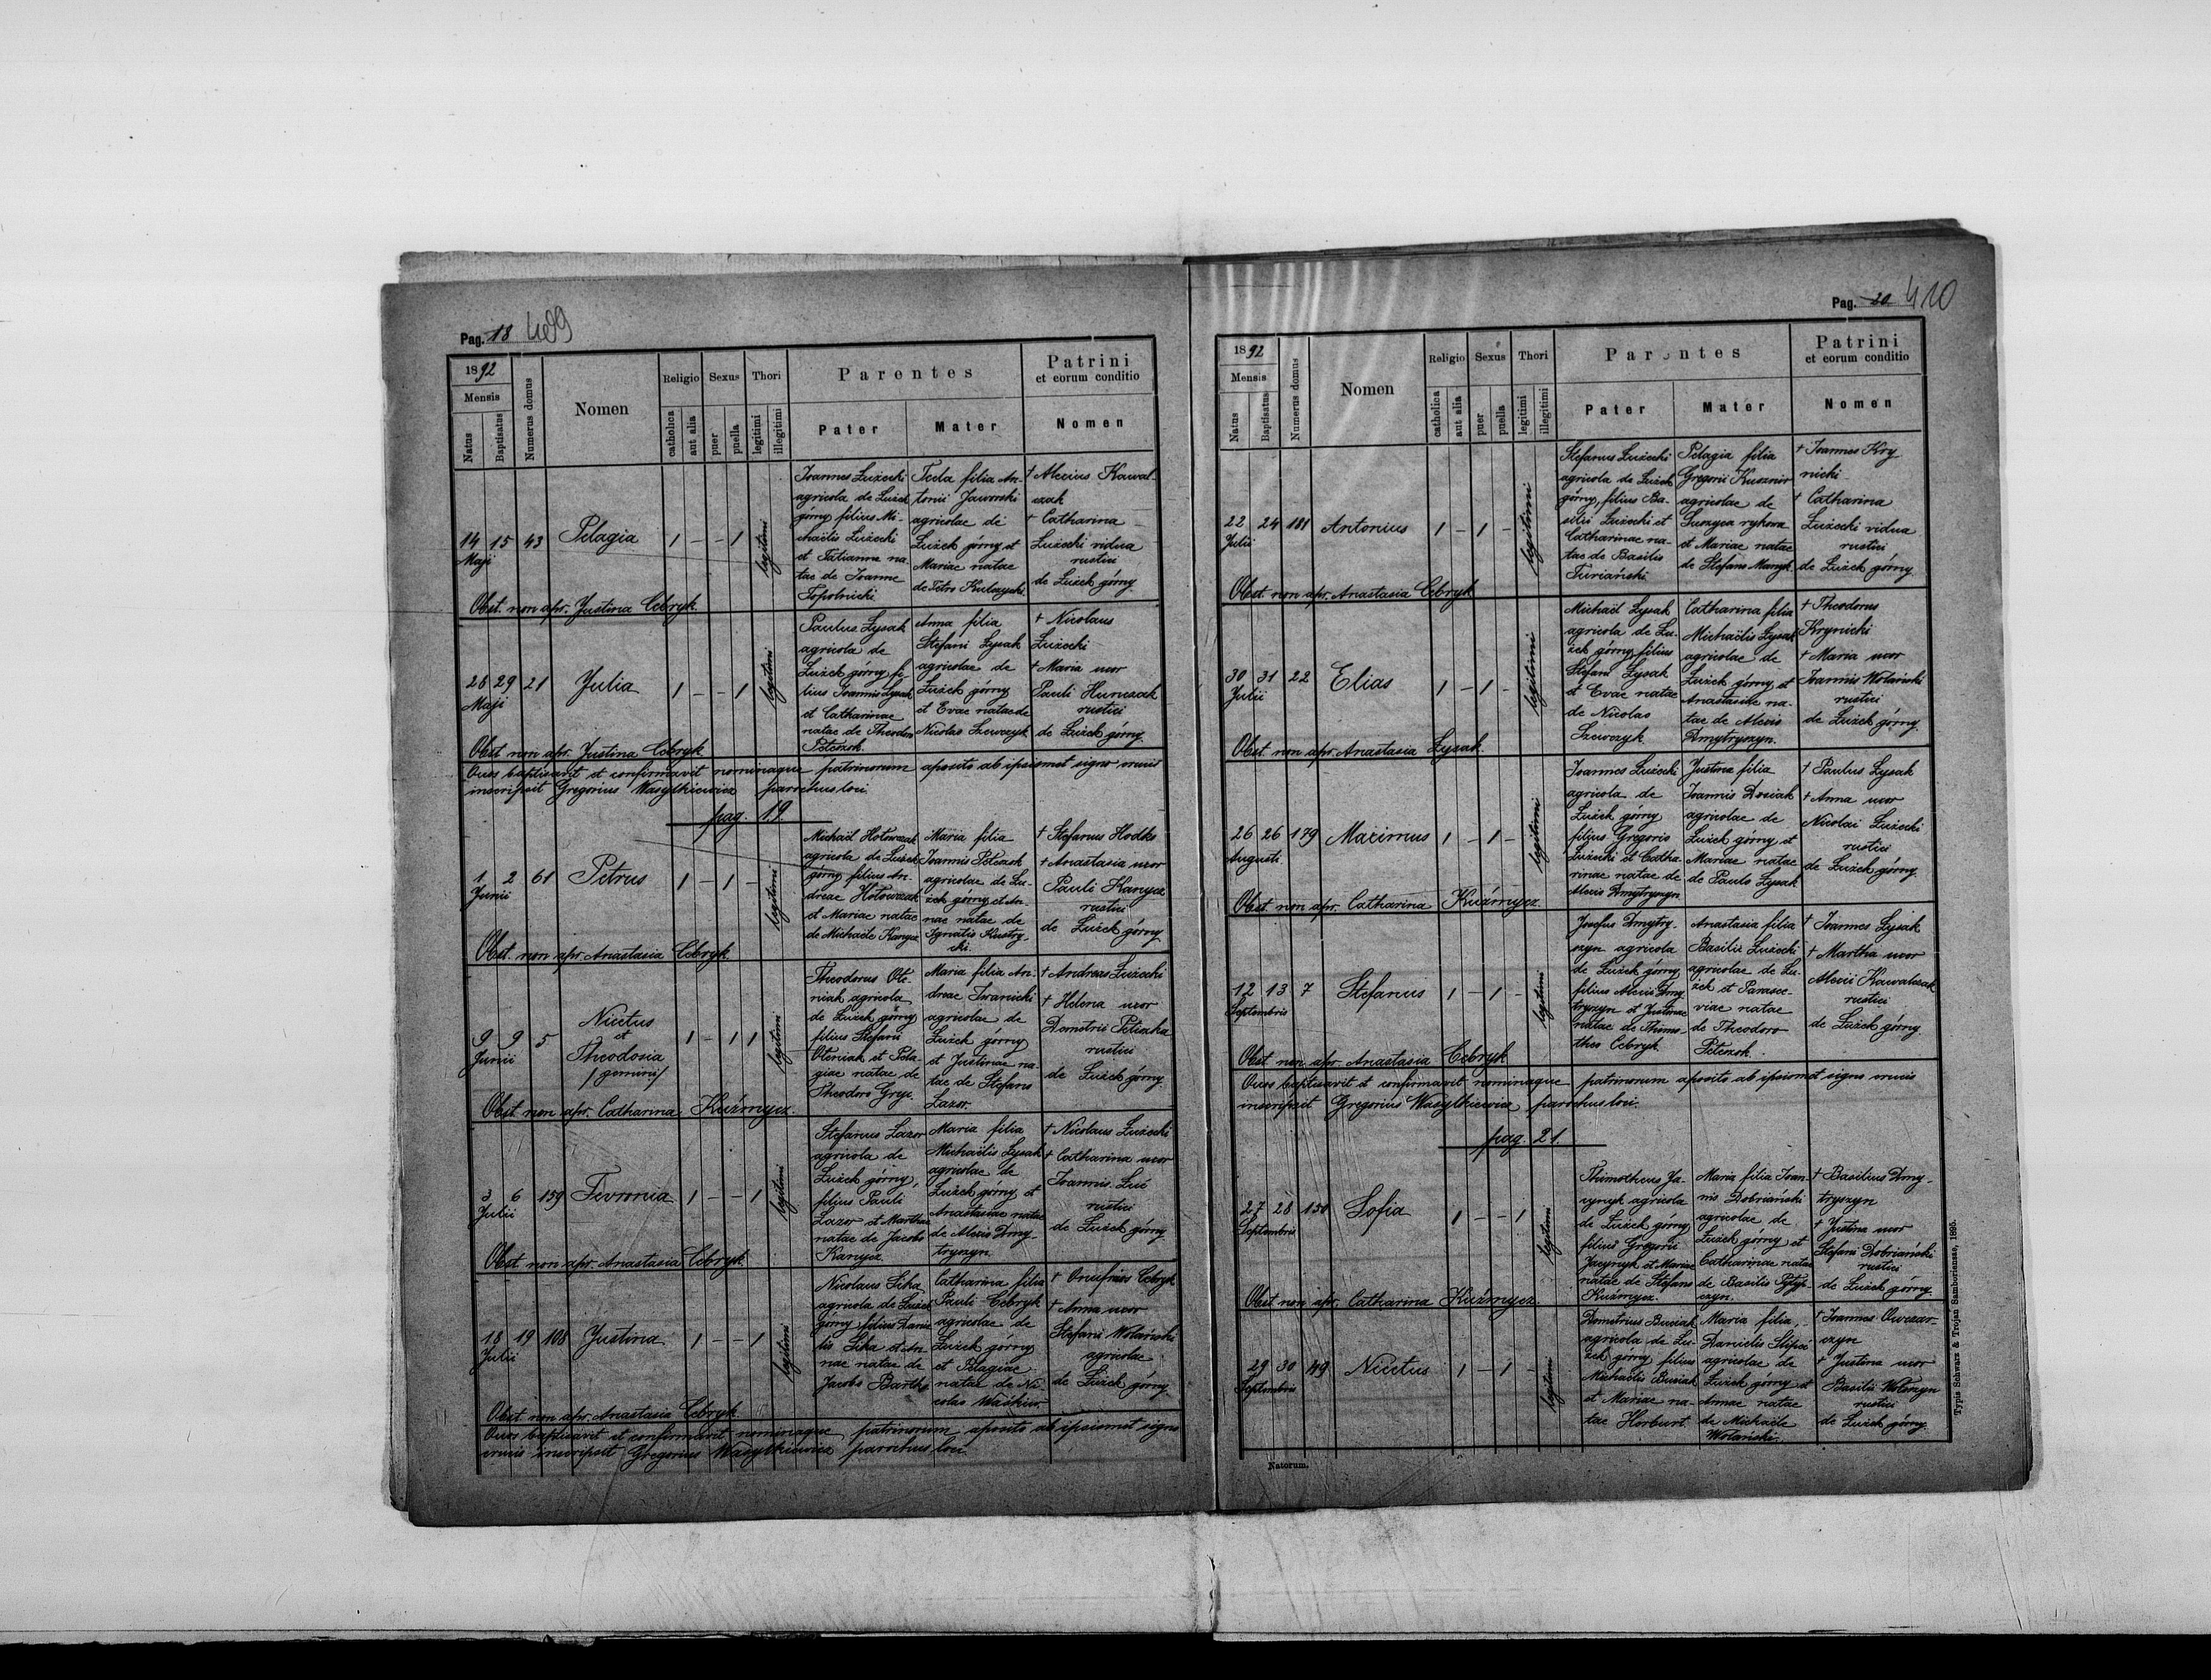 Pag. 18 409
1892
Mensis
Natus
Baptisatus
Numerus domus
Nomen
Religio
catholica
aut alia
Sexus
puer
puella
Thori
legitimi
illegitimi
Parentes
Pater
Mater
Patrini
et eorum conditio
Nomen
14 15 43 Pelagia 1 - - 1 legitimi
Maji
Joannes Łużecki
agricola de Łużek
górny filius Mi-
chaëlis Łużecki
et Tatianne na-
tae de Joanne
Topolnicki.
Tecla filia An-
tonii Jaworski
agricolae de
Łużek górny et
Mariae natae
de Petro Kulczycki.
† Alexius Kowal-
czak
† Catharina
Łużecki vidua
rustici
de Łużek górny
Obst. non apr. Justina Cebryk.
28 29 21 Julia 1 - - 1 legitimi
Maji
Paulus Łysak
agricola de
Łużek górny fi-
lius Joannis Łysak
et Catharinae
natae de Theodoro
Petczok.
Anna filia
Stefani Łysak
agricolae de
Łużek górny
et Evae natae de
Nicolao Szewczyk
† Nicolaus
Łużecki
† Maria uxor
Pauli Hunczak
rustici
de Łużek górny.
Obst. non apr. Justina Cebryk
Quos baptisavit et confirmavit nominaque patrinorum aposito ab ipsismet signo crucis
inscripsit Gregorius Wasylkiewicz parochus loci.
pag. 19
1 2 61 Petrus 1 - 1 - legitimi
Junii
Michaël Hołowczak
agricola de Łużek
górny, filius An-
dreae Hołowczak
et Mariae natae
de Michaële Kanycz
Maria filia
Joannis Petczok
agricolae de Łu-
żek górny et An-
nae natae de
† Stefanus Hodko
† Anastasia uxor
Pauli Kanycz
rustici
de Łużek górny
Obst. non apr. Anastasia Cebryk.
9 9 5 Nicetus
et
Theodosia
/gemini/
1 - 1 1 legitimi
Junii
Theodorus Ole-
niak agricola
de Łużek górny
filius Stefani
Oleniak et Pela-
giae natae de
Theodoro Gryc.
Maria filia An-
dreae Iwanicki
agricolae de
Łużek górny
et Justinae na-
tae de Stefano
Lazor.
† Andreas Łużecki
† Helena uxor
Demetrii
rustici
de Łużek górny
Obst. non apr. Catharina Kuźmycz.
3 6 159 Fevronia 1 - - 1 legitimi
Julii
Stefanus Lazor
agricola de
Łużek górny,
filius Pauli
Lazor et Marthae
natae de Jacobo
Kanycz
Maria filia
Michaëlis Łysak
agricolae de
Łużek górny et
Anastasiae natae
de Alexio Dmy-
tryszyn.
† Nicolaus Łużecki
† Catharina uxor
Joannis
rustici
de Łużek górny
Obst. non apr. Anastasia Cebryk.
18 19 108 Justina 1 - - 1 legitimi
Julii
Nicolaus Sika
agricola de Łużek
górny, filius Danie-
lis Sika et An-
nae natae de
Jacobo Bartko
Catharina filia
Pauli Cebryk
agricolae de
Łużek górny
et Pelagiae
natae de Ni-
colao Waśkiw.
† Onufrius Cebryk
† Anna uxor
Stefani Wolański
agricolae
de Łużek górny
Obst. non apr. Anastasia Cebryk
Quos baptisavit et confirmavit nominaque patrinorum aposito ab ipsismet signo
crucis inscripsit Gregorius Wasylkiewicz parochus loci.
Pag. 20 410
1892
Mensis
Natus
Baptisatus
Numerus domus
Nomen
Religio
catholica
aut alia
Sexus
puer
puella
Thori
legitimi
illegitimi
Parentes
Pater
Mater
Patrini
et eorum conditio
Nomen
22 24 181 Antonius 1 - 1 - legitimi
Julii
Stefanus Łużecki
agricola de Łużek
górny, filius Ba-
silii Łużecki et
Catharinae na-
tae de Basilio
Turiański.
Pelagia filia
Gregorii Kusznir
agricolae de
Suszyca rykowa
et Mariae natae
de Stefano
† Joannes Kry
nicki
† Catharina
Łużecki vidua
rustici
de Łużek górny
Obst. non apr. Anastasia Cebryk
30 31 22 Elias 1 - 1 - legitimi
Julii
Michaël Łysak
agricola de Łu-
żek górny, filius
Stefani Łysak
et Evae natae
de Nicolao
Szewczyk.
Catharina filia
Michaëlis Łysak
agricolae de
Łużek górny et
Anastasiae na-
tae de Alexio
Dmytryszyn.
† Theodorus
Krynicki
† Maria uxor
Joannis Wolański
rustici
de Łużek górny.
Obst. non apr. Anastasia Łysak.
26 26 179 Maximus 1 - 1 - legitimi
Augusti
Joannes Łużecki
agricola de
Łużek górny
filius Gregorio
Łużecki et Catha-
rinae natae de
Alexio Dmytryszyn
Justina filia
Joannis Dosiak
agricolae de
Łużek górny et
Mariae natae
de Paulo Łysak
† Paulus Łysak
† Anna uxor
Nicolai Łużecki
rustici
de Łużek górny.
Obst. non apr. Catharina Kuźmycz.
12 13 7 Stefanus 1 - 1 - legitimi
Septembris
Josefus Dmytry-
szyn agricola
de Łużek górny
filius Alexii Dmy-
tryszyn et Justinae
natae de Thimo-
theo Cebryk
Anastasia filia
Basilii Łużecki
agricolae de Łu-
żek et Parasce-
viae natae
de Theodoro
Petczok.
† Joannes Łysak
† Martha uxor
Alexii Kowalczak
rustici
de Łużek górny.
Obst. non apr. Anastasia Cebryk
Quos baptisavit et confirmavit nominaque patrinorum aposito ab ipsismet signo crucis
inscripsit Gregorius Wasylkiewicz parochus loci.
pag. 21.
27 28 150 Sofia 1 - - 1 legitimi
Septembris
Thimotheus Ja-
cynyk agricola
de Łużek górny
filius Gregorii
Jacynyk et Mariae
natae de Stefano
Kuźmycz.
Maria filia Joan-
nis Dobriański
agricolae de
Łużek górny, et
Catharinae natae
de Basilio Pytyp-
czyn.
† Basilius Dmy-
tryszyn
† Justina uxor
Stefani Dobriański
rustici
de Łużek górny.
Obst. non apr. Catharina Kuźmycz.
29 30 49 Nicetus 1 - 1 - legitimi
Septembris
Demetrius Busiak
agricola de Łu-
żek górny filius
Michaëlis Busiak
et Mariae na-
tae Horburt.
Maria filia,
Danielis Slipec
agricolae de
Łużek górny et
Annae natae
de Michaële
Wolański.
† Joannes Owczar-
czyn
† Justina uxor
Basilii Wolczyn
rustici
de Łużek górny
Natorum.
Typis Schwarz & Trojan Samboriensae, 1895.